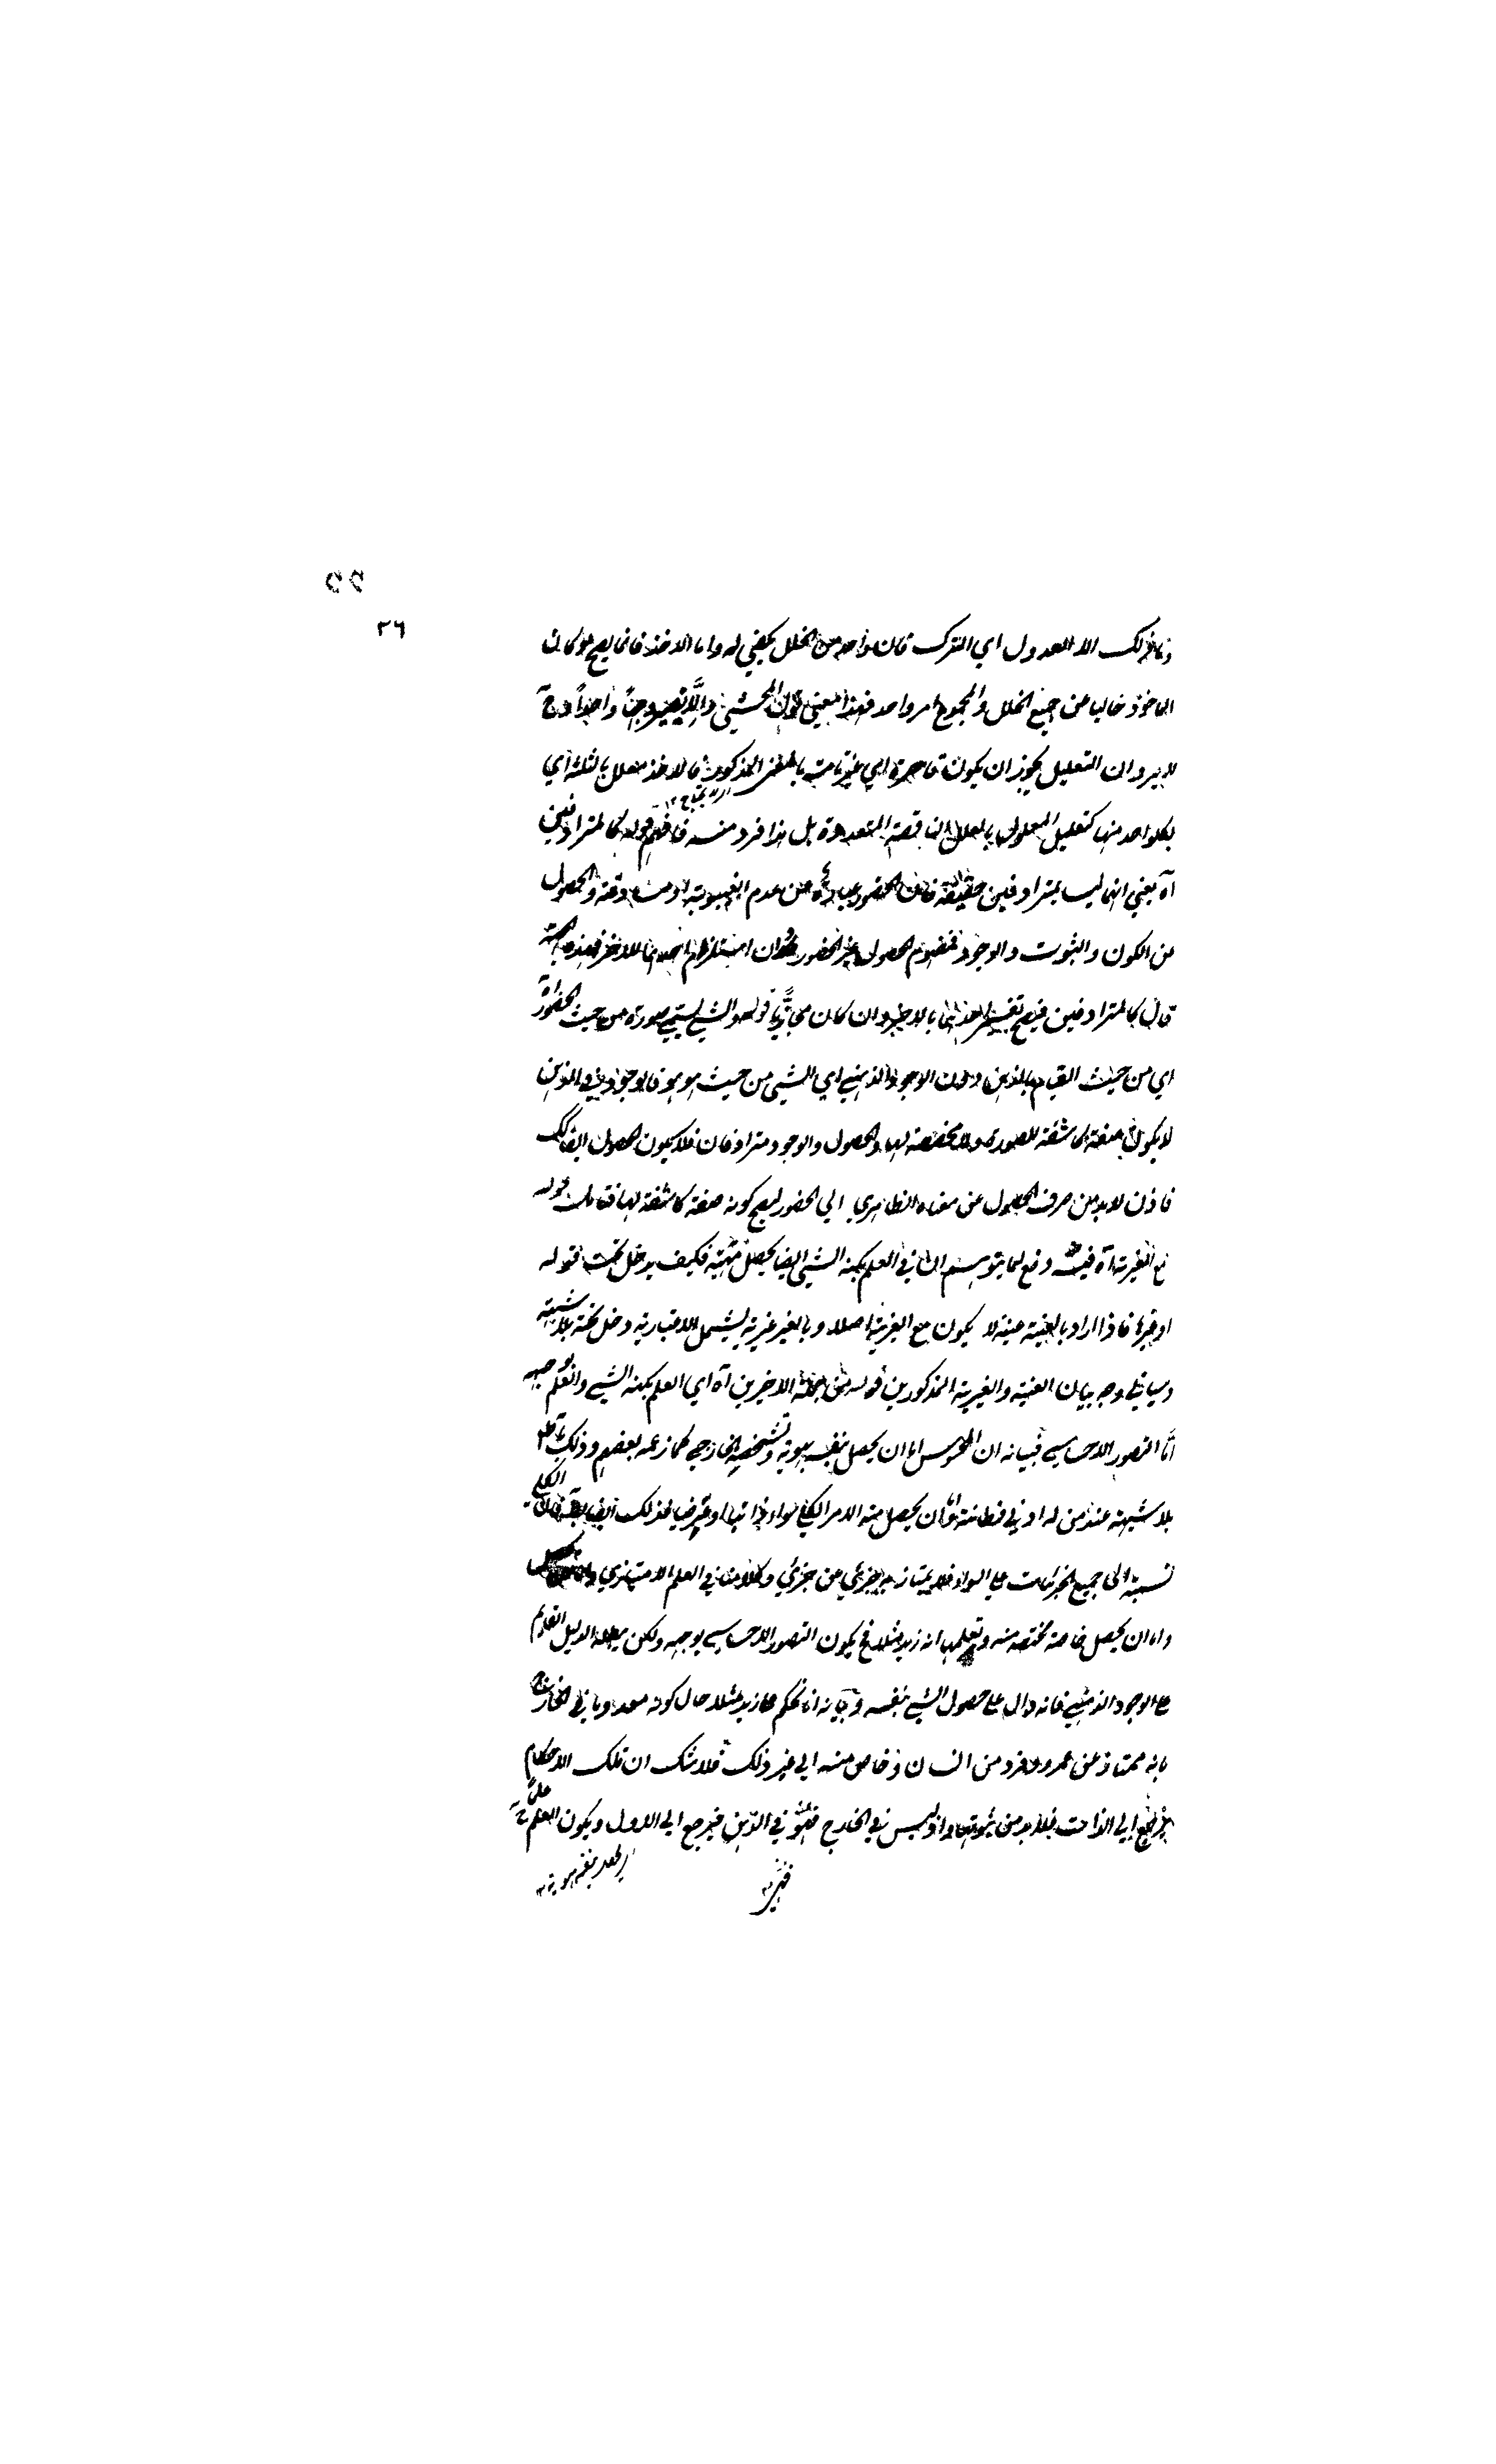 ٥٥
٣٦
العدول اي الترك فان واحد من الخلل يكفي له واما الاخذ فانما يصح لو كان
الماخوذ خاليا عن جميع الخلل والمجموع امر واحد فهذا معنى قول المحشي والا يصير وجها واحدا
لا يرد ان التعليل يجوز ان يكون قاصرة اي غير تامة بالمعنى المذكور فالاخذ معلل بالثلثة اي
بكل واحد منها كتعليل المعلول بالعلل الناقصة المتعددة بل هذا فرد منه فافهم قوله كالمترادفين
آه يعني انهما ليسا بمترادفين حقيقة فان الحضور عبارة عن عدم الغيبوبة والحصول
من الكون والثبوت والوجود فمفهوم الحصول غير الحضور وان استلزم احدهما للاخر فبهذه الجهة
قال كالمترادفين فيصح تفسير احدهما بالاخر وان كان مجازيا قوله والشيء يسمى صورة من حيث الحضور آه
اي من حيث القيام بالذهن دون الوجود الذهني اي الشيء من حيث هو هو فالوجود في الذهن
لا يكون صفة كاشفة للصورة ولا مخصصة لها والحصول والوجود مترادفان فلا يكون الحصول ايضا كذلك
فاذن لا بد من صرف الحصول عن معناه الظاهري الى الحضور ليصح كونه صفة كاشفة لها فتامل قوله
مع الغيرية آه فيه دفع لما يتوهم ان في العلم بكنه الشيء ايضا يحصل فكيف يدخل تحت قوله
او غيرها فاذا اراد بالعينية عينية لا يكون مع الغيرية اصلا وبالغير غيرية يشمل الاعتبارية دخل تحته بلا شبهة
وسياتي وجه بيان العينية والغيرية المذكورين قوله الاخيرين آه اي العلم بكنه الشيء والعلم بوجهه
اما التصور الاحساسي فبيانه ان المحسوس اما ان يحصل بنفسه بهويته وتشخصه الخارجي كما زعمه بعضهم وذلك باطل
بلا شبهة عند من له ادنى فطانة واما ان يحصل منه الامر الكلي سواء ذاتيا او عرضيا فذلك ايضا فان الكلي
نسبته الى جميع الجزئيات على السواء فلا يمتاز به جزئي من جزئي وكلامنا في العلم الامتيازي
واما ان يحصل خاصة مختصة منه ويعلم بها انه زيد مثلا فح يكون التصور الاحساسي بوجهه ولكن الدليل القائم
على الوجود الذهني فانه دال على حصول الشيء بنفسه وبيانه انا نحكم على زيد مثلا حال كونه معدوما في الخارج
بانه ممتاز عن عمرو وفرد من الانسان وخاص منه الى غير ذلك فلا شك ان تلك الاحكام
يرجع الى الذات فلا بد من ثبوتها واذ ليس في الخارج فهو في الذهن فيرجع الى الاول ويكون العلم